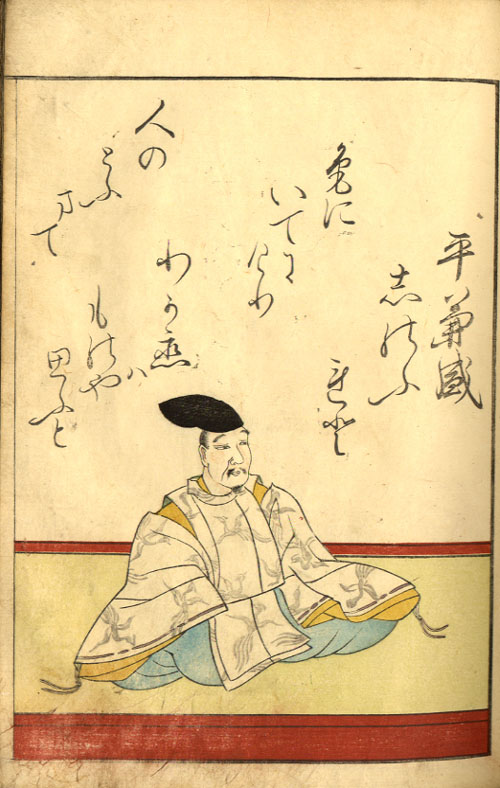 平兼盛
志のふ
れと
色に
いてに
けり
わか恋ハ
ものや
思ふと
人の
とふ
まて